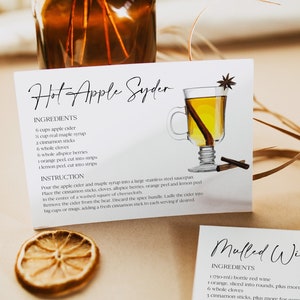 Hot Apple Syder
INGREDIENTS
6 cups apple cider
½ cup real maple syrup
2 cinnamon sticks
6 whole cloves
6 whole allspice berries
1 orange peel, cut into strips
1 lemon peel, cut into strips
INSTRUCTION
Pour the apple cider and maple syrup into a large stainless steel saucepan
Place the cinnamon sticks, cloves, allspice berries, orange peel and lemon peel
in the center of a washed square of cheesecloth;
Remove the cider from the heat. Discard the spice bundle. Ladle the cider into
big cups or mugs, adding a fresh cinnamon stick to each serving if desired.
Mulled Wi
INGREDIENTS
1 (750-ml) bottle red wine
1 orange, sliced into rounds, plus more
6 whole cloves
3 cinnamon sticks, plus more fo